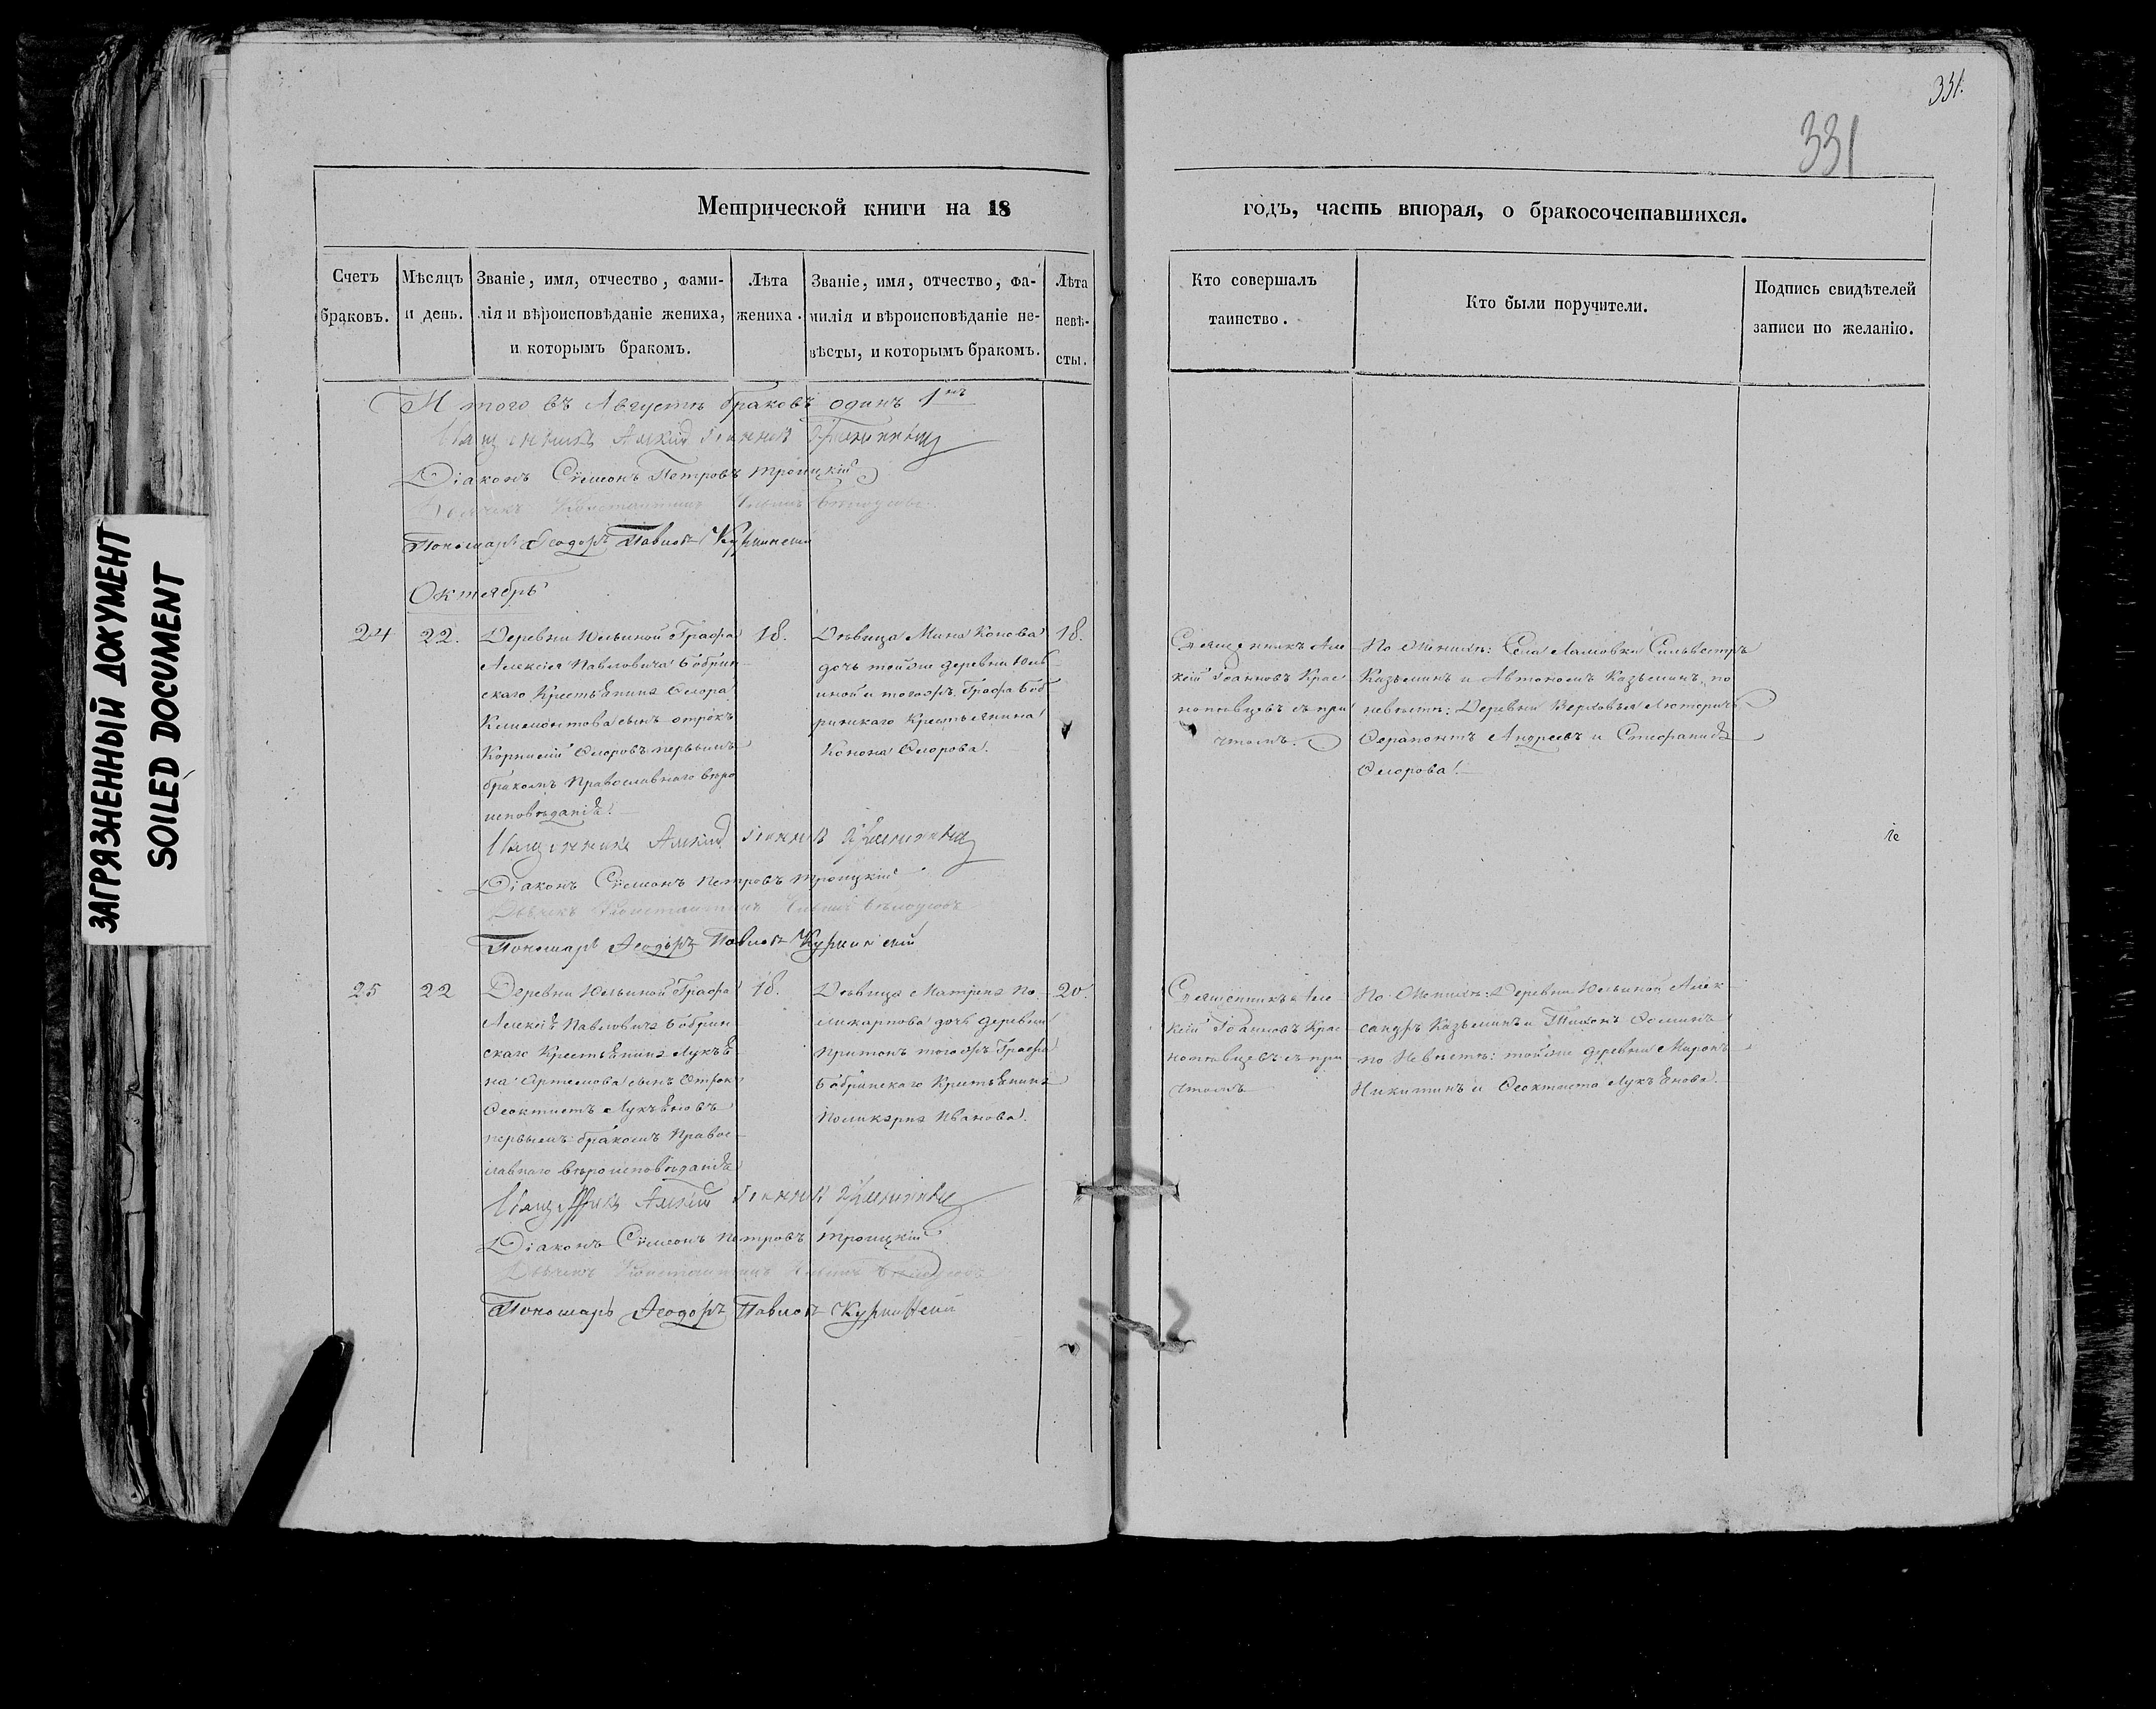 331.
331
ЗАГРЯЗНЕННЫЙ ДОКУМЕНТ
SOILED DOCUMENT
Метрической книги на 18
годъ, часть вторая, о бракосочетавшихся.
Счетъ браковъ.
Мѣсяцъ и день.
Званіе, имя, отчество, фами-
лія и вѣроисповѣданіе жениха,
и которымъ бракомъ.
Лѣта жениха.
Званіе, имя, отчество, фа-
милія и вѣроисповѣданіе не-
вѣсты, и которымъ бракомъ.
Лѣта
невѣ-
сты.
Кто совершалъ
таинство.
Кто были поручители.
Подпись свидѣтелей
записи по желанію.
Итого въ Августѣ браковъ одинъ 1нъ
Священникъ Алексій Іоанновъ
Діаконъ Сѵмеонъ Петровъ Троицкій
Дьячекъ Константинъ
Пономарь Ѳеодоръ Павловъ
Октябрь
24
22.
Деревни Юльиной Графа
Алексія Павловича Бобрин-
скаго Крестьянина Ѳедора
Климонтова сынъ отрокъ
Корнилій Ѳедоровъ первымъ
бракомъ Православнаго вѣро
исповѣданія.
18.
Дѣвица Мина Конова
дочь тойже деревни Юль-
иной и тогожъ Графа Боб-
ринскаго Крестьянина
Конона Ѳедорова.
18.
Священникъ Але-
ксій Іоанновъ Крас-
нопѣвцевъ съ при
чтомъ.
По Женихѣ: Села Ламовки Сильвестръ
Казьминъ и Автономъ Казьминъ, по
невѣстѣ: Деревни Верховья Люторичъ
Ѳерапонтъ Андреевъ и Стефанида
Ѳедорова.
Священникъ Алексій Іоанновъ
Діаконъ Сѵмеонъ Петровъ Троицкій
Дьячекъ Константинъ
Пономарь Ѳеодоръ Павловъ
25
22
Деревни Юльиной Графа
Алексія Павловича Бобрин-
скаго Крестьянина Лукья-
на Артемова сынъ Отрокъ
Ѳеоктистъ Лукьяновъ
первымъ бракомъ Правос-
лавнаго вѣроисповѣданія
18.
Дѣвица Матрена По-
ликарпова дочь деревни
Притонъ тогожъ Графа
Бобринскаго Крестьянина
Поликарпа Иванова.
20.
Священникъ Але-
ксій Іоанновъ Крас-
нопѣвцевъ съ при
чтомъ
По Женихѣ: Деревни Юльиной Алек-
сандръ Казьминъ и Тихонъ Ѳоминъ
по Невѣстѣ: тойже деревни Миронъ
Никитинъ и Ѳеоктиста Лукьянова.
Священникъ Алексій Іоанновъ
Діаконъ Сѵмеонъ Петровъ Троицкій
Дьячекъ Константинъ
Пономарь Ѳеодоръ Павловъ